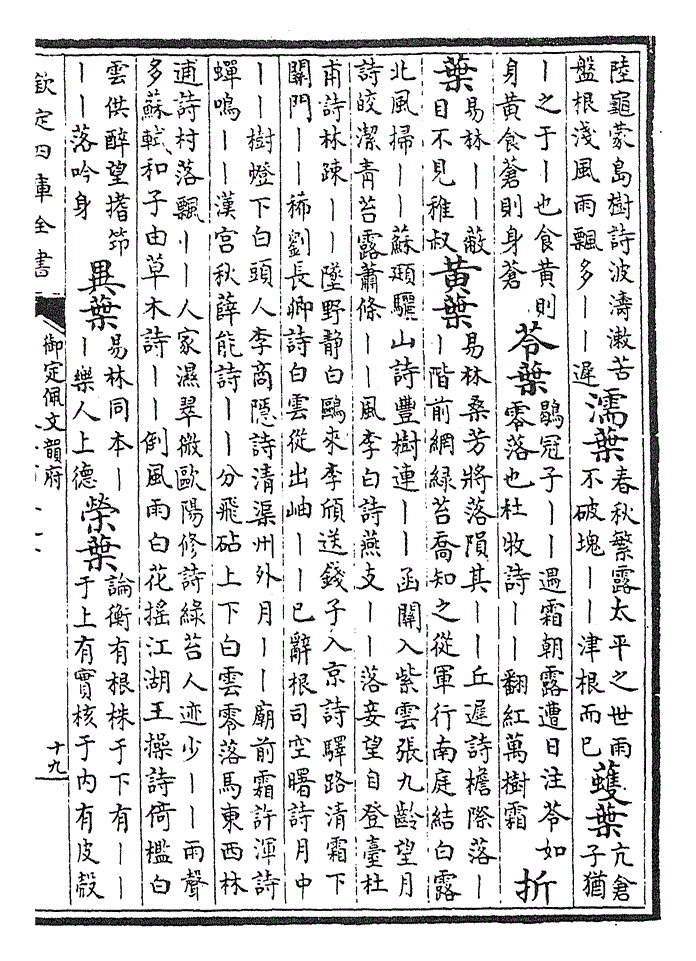 陸龜蒙島樹詩波濤漱苦
盤根淺風雨飄多丨丨遲
濡葉
春秋繁露太平之世雨
不破塊丨丨津根而已
蠖葉
亢倉
子猶
丨之于丨也食黄則
身黄食蒼則身蒼
苓葉
鶡冠子丨丨遇霜朝露遭日注苓如
零落也杜牧詩丨丨翻紅萬樹霜
折
葉
易林丨丨敝
目不見稚叔
黄葉
易林桑芳將落隕其丨丨丘遲詩檐際落丨
丨階前網緑苔喬知之從軍行南庭結白露
北風掃丨丨蘇頲驪山詩豐樹連丨丨函關入紫雲張九齡望月
詩皎潔青苔露蕭條丨丨風李白詩燕支丨丨落妾望自登臺杜
甫詩林疎丨丨墜野静白鷗來李頎送錢子入京詩驛路清霜下
關門丨丨稀劉長卿詩白雲從出岫丨丨已辭根司空曙詩月中
丨丨樹燈下白頭人李商隱詩清渠州外月丨丨廟前霜許渾詩
蟬鳴丨丨漢宫秋薛能詩丨丨分飛砧上下白雲零落馬東西林
逋詩村落飄丨丨人家濕翠微歐陽修詩緑苔人迹少丨丨雨聲
多蘇軾和子由草木詩丨丨倒風雨白花摇江湖王操詩倚檻白
雲供醉望揩筇
丨丨落吟身
異葉
易林同本丨
丨樂人上德
榮葉
論衡有根株于下有丨丨
于上有實核于内有皮殼
欽定四庫全書
御定佩文韻府
十九